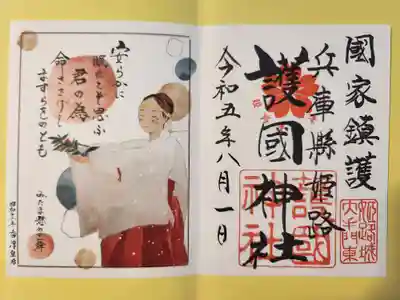 國家鎮護
兵庫縣姫路
護國神社
令和五年八月一日
姫路城
護國
神社
安らかに
眠れとぞ思ふ
君の為
命ささげし
ますらをのとも
みたま慰の舞